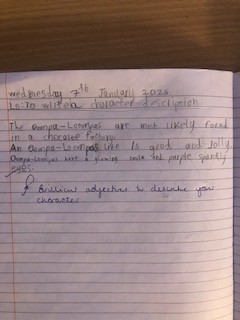 Wednesday 7th January 2026
Lo: To write a character description
The Oompa-Loompas are most likely found
in a chocolate factory.
An Oompa-Loompas life is good and jolly
Oompa-Loompas have a glowing smile and purple sparkly
eyes.
Brilliant adjectives to describe your
character